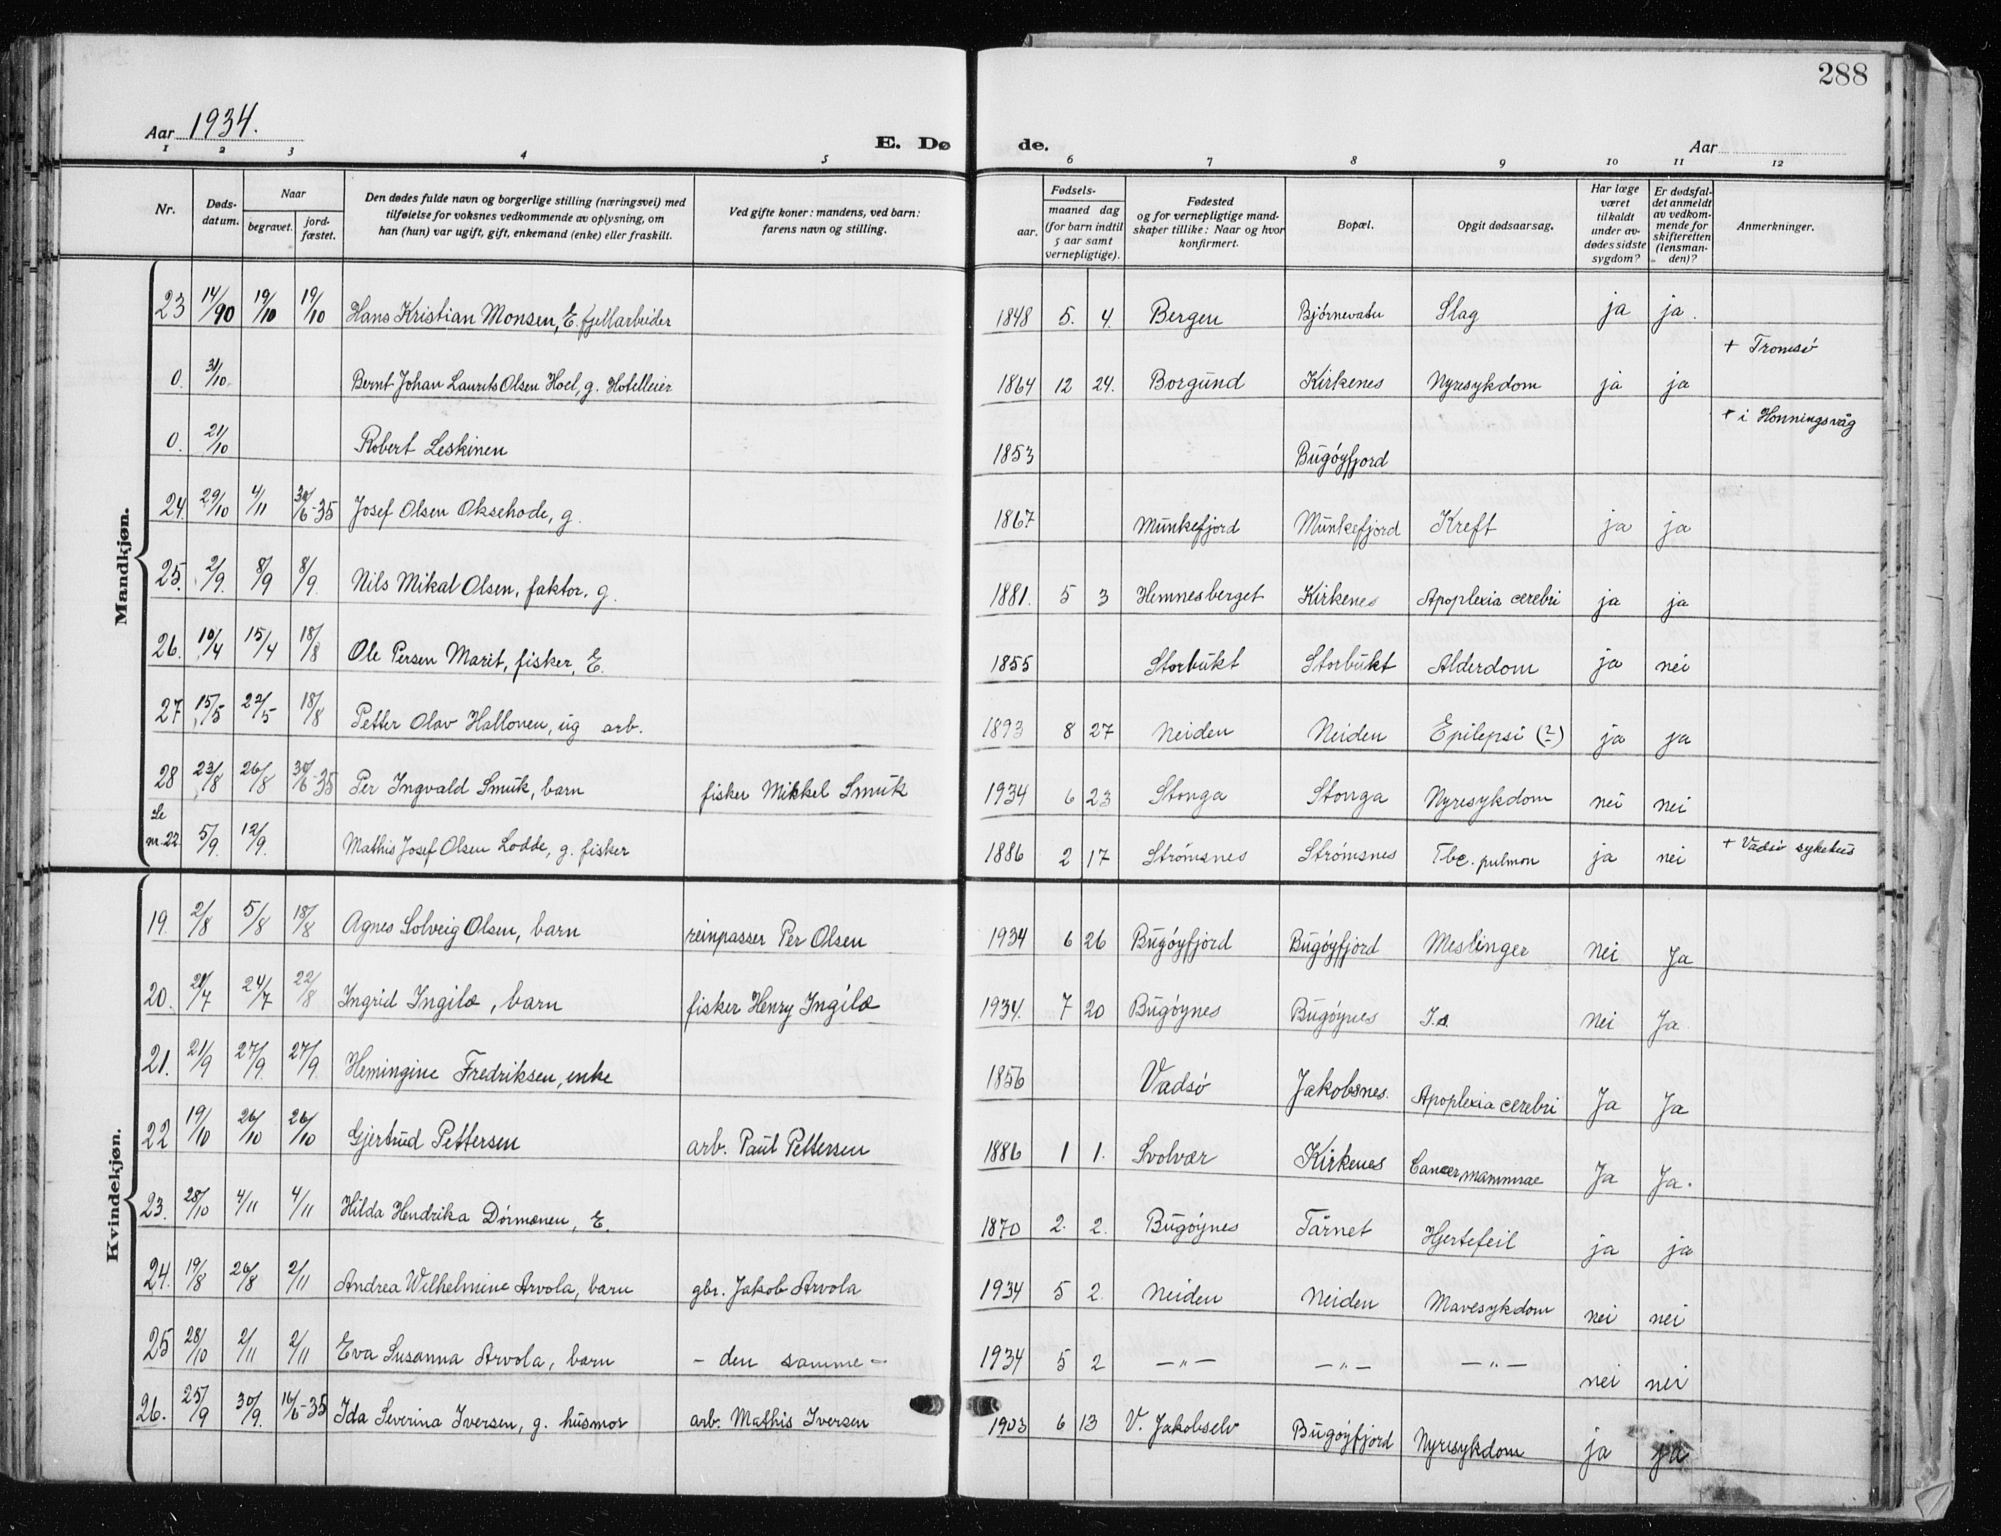 288
Aar 1934.
E. Dø de.
Aar
1 2 3 4 5 6 7 8 9 10 11 12
Nr.
Dødsdatum.
Naar
begravet.
jordfæstet.
Den dødes fulde navn og borgerlige stilling (næringsvei) med
tilføielse for voksnes vedkommende av oplysning, om
han (hun) var ugift, gift, enkemand (enke) eller fraskilt.
Ved gifte koner: mandens, ved barn:
farens navn og stilling.
Fødsels-
aar.
maaned dag
(for barn indtil
5 aar samt
vernepligtige).
Fødested
og for vernepligtige mand-
skaper tillike: Naar og hvor
konfirmert.
Bopæl.
Opgit dødsaarsag.
Har læge
været
tilkaldt
under av-
dødes sidste
sygdom?
Er dødsfal-
det anmeldt
av vedkom-
mende for
skifteretten
(lensman-
den)?
Anmerkninger.
Mandkjøn.
23 14/90 19/10 19/10 Hans Kristian Monsen, E. fjellarbeider 1848 5. 4. Bergen Bjørnevatn Slag ja ja.
0. 31/10 Bernt Johan Laurits Olsen Hoel, g. Hotelleier 1864 12 24. Borgund Kirkenes Nyresykdom ja ja + Tromsø
0. 21/10 Robert Leskinen 1853 Bugøyfjord + i Honningsvåg
24. 29/10 4/11 30/6-35 Josef Olsen Oksehode, g. 1867 Munkefjord Munkefjord Kreft ja ja
25. 2/9. 8/9 8/9. Nils Mikal Olsen, faktor, g. 1881. 5 3 Hemnesberget Kirkenes Apoplexia cerebri ja ja
26. 10/4 15/4 18/8 Ole Persen Marit, fisker, E. 1855 Storbukt Storbukt Alderdom ja nei
27 15/5 22/5 18/8 Petter Olav Hallonen, ug arb. 1893 8 27 Neiden Neiden Epilepsi (?) ja ja
28 23/8 26/8 30/6-35 Per Ingvald Smuk, barn fisker Mikkel Smuk 1934 6 23 Stonga Stonga Nyresykdom nei nei
Se nr. 22 5/9. 12/9. Mathis Josef Olsen Lodde, g. fisker 1886 2 17 Strømsnes Strømsnes Tbc. pulmon ja nei + Vadsø sykehus
Kvindekjøn.
19. 2/8 5/8 18/8 Agnes Solveig Olsen, barn reinpasser Per Olsen 1934 6 26 Bugøyfjord Bugøyfjord Meslinger nei Ja
20. 21/7 24/7 22/8 Ingrid Ingilæ, barn fisker Henry Ingilæ 1934. 7 20 Bugøynes Bugøynes nei Ja
21. 21/9 27/9. 27/9. Hemingine Fredriksen, enke 1856 Vadsø Jakobsnes. Apoplexia cerebri Ja Ja
22 19/10 26/10 26/10 Gjertrud Pettersen arb. Paul Pettersen 1886 1 1. Svolvær Kirkenes Cancer mammae Ja Ja.
23. 28/10 4/11 4/11 Hilda Hendrika Dørmænen, E. 1870 2. 2. Bugøynes Tårnet Hjertefeil ja ja
24. 19/8 26/8 2/11 Andrea Wilhelmine Arvola, barn gbr. Jakob Arvola 1934 5 2. Neiden Neiden Mavesykdom nei nei
25 28/10 2/11 2/11 Eva Susanna Arvola, barn - den samme - 1934 5 2 -"- -"- -"- nei nei
26. 25/9 30/9. 16/6-35 Ida Severina Iversen, g. husmor arb. Mathis Iversen 1903 6 13 V. Jakobselv Bugøyfjord Nyresykdom ja ja